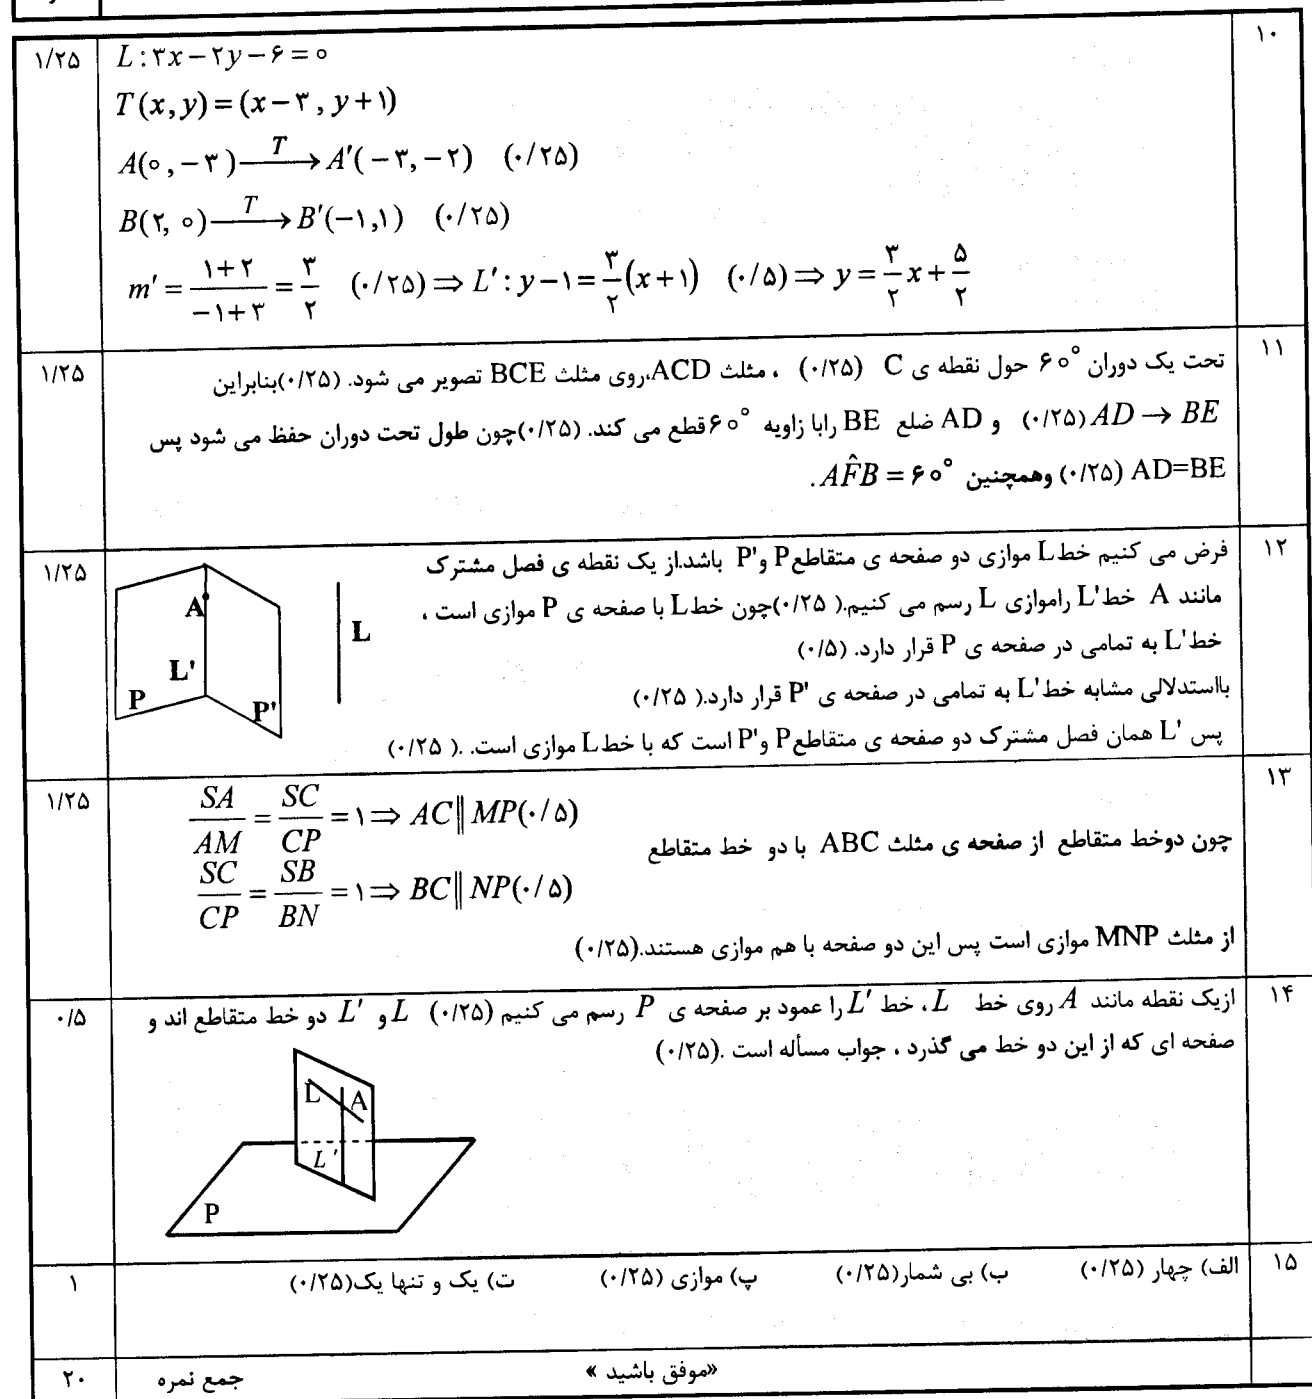 ۱۰
L : ۳x − ۲y − ۶ = ۰
۱/۲۵
T(x, y) = (x − ۳ , y + ۱)
A(۰ , −۳) —T→ A′(−۳, −۲) (۰/۲۵)
B(۲, ۰) —T→ B′(−۱,۱) (۰/۲۵)
m′ = (۱+۲)/(−۱+۳) = ۳/۲ (۰/۲۵) ⇒ L′ : y − ۱ = ۳/۲ (x + ۱) (۰/۵) ⇒ y = ۳/۲ x + ۵/۲
۱۱
تحت یک دوران ۶۰° حول نقطه ی C (۰/۲۵) ، مثلث ACD،روی مثلث BCE تصویر می شود. (۰/۲۵)بنابراین
۱/۲۵
AD → BE (۰/۲۵) و AD ضلع BE رابا زاویه ۶۰° قطع می کند. (۰/۲۵)چون طول تحت دوران حفظ می شود پس
AD=BE (۰/۲۵) وهمچنین AF̂B = ۶۰° .
۱۲
فرض می کنیم خط L موازی دو صفحه ی متقاطع P و P' باشد.از یک نقطه ی فصل مشترک
۱/۲۵
مانند A خط L' راموازی L رسم می کنیم.( ۰/۲۵)چون خط L با صفحه ی P موازی است ،
خط L' به تمامی در صفحه ی P قرار دارد. (۰/۵)
بااستدلالی مشابه خط L' به تمامی در صفحه ی P' قرار دارد.( ۰/۲۵)
پس L' همان فصل مشترک دو صفحه ی متقاطع P و P' است که با خط L موازی است. .( ۰/۲۵)
A
L
L'
P
P'
۱۳
SA/AM = SC/CP = ۱ ⇒ AC ∥ MP (۰/۵)
۱/۲۵
چون دوخط متقاطع از صفحه ی مثلث ABC با دو خط متقاطع
SC/CP = SB/BN = ۱ ⇒ BC ∥ NP (۰/۵)
از مثلث MNP موازی است پس این دو صفحه با هم موازی هستند.(۰/۲۵)
۱۴
ازیک نقطه مانند A روی خط L ، خط L′ را عمود بر صفحه ی P رسم می کنیم (۰/۲۵) L و L′ دو خط متقاطع اند و
۰/۵
صفحه ای که از این دو خط می گذرد ، جواب مسأله است .(۰/۲۵)
L
A
L′
P
۱۵
الف) چهار (۰/۲۵) ب) بی شمار(۰/۲۵) پ) موازی (۰/۲۵) ت) یک و تنها یک(۰/۲۵)
۱
«موفق باشید »
جمع نمره
۲۰